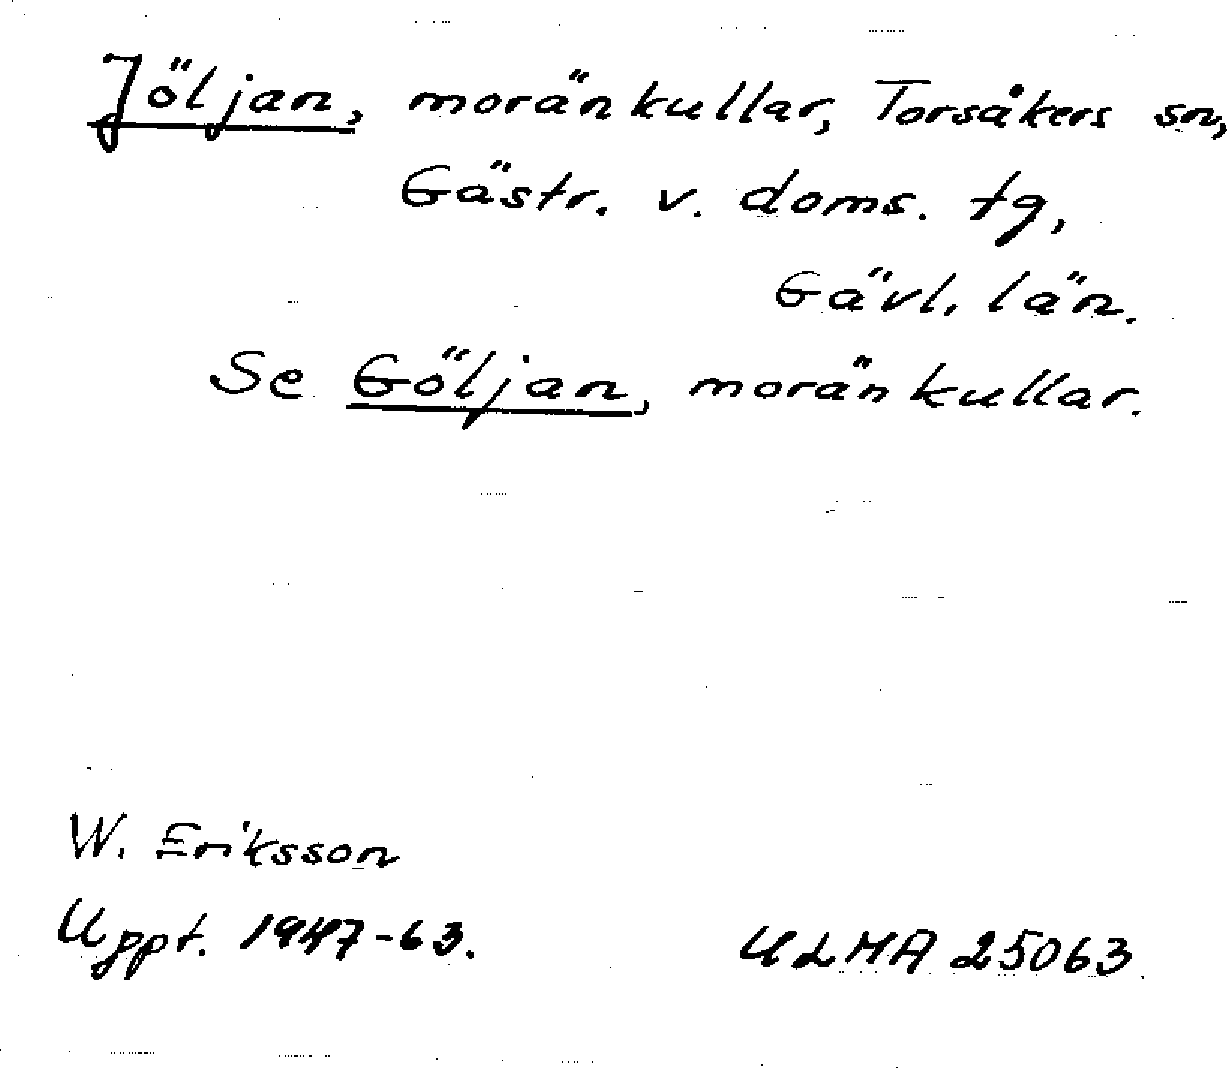 Jöljan, moränkullar, Torsåkers sn,
Gästr. v. doms. tg,
Gävl. län.
Se Göljan, moränkullar.
W. Eriksson
Uppt. 1947-63.
ULMA 25063